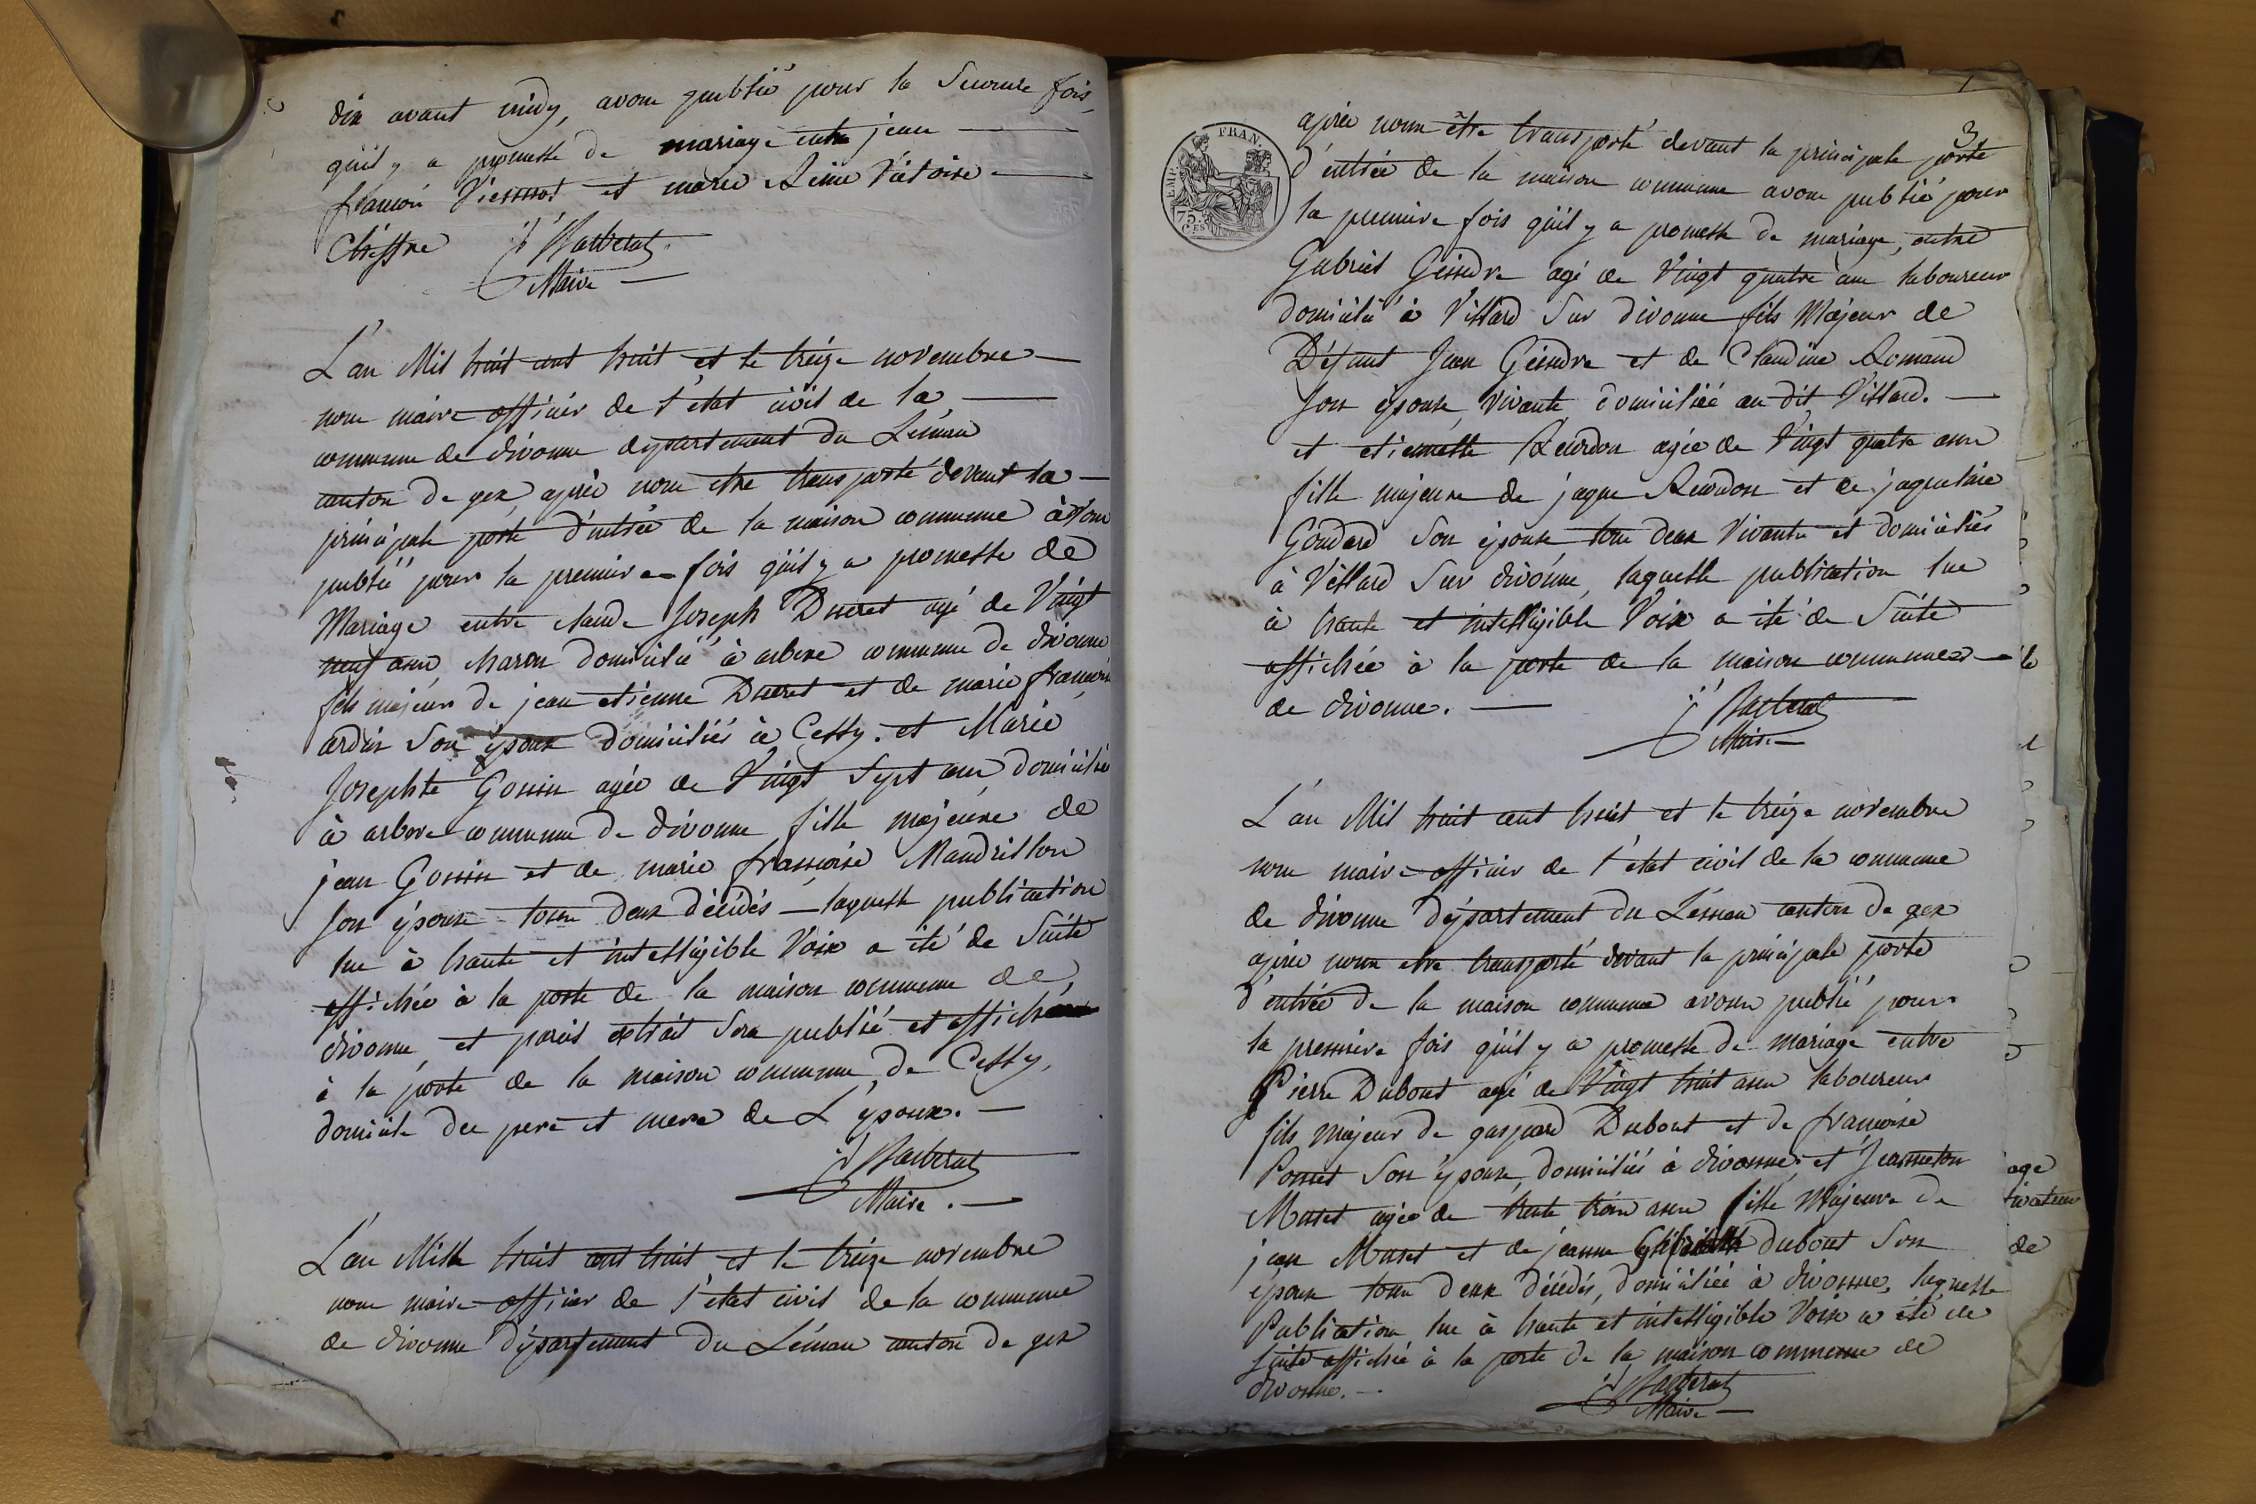 dix avant midy, avons publié pour la seconde fois,
qu'il y a promesse de mariage entre jean
françois Viennot et marie Reine Victoire
Chiffre J Barberat
Maire
L'an Mil huit cent huit et le treize novembre
nous maire officier de l'etat civil de la
commune de divonne departement du Léman
canton de gex, après nous etre transporté devant la
principale porte d'entrée de la maison commune avons
publié pour la premiere fois qu'il y a promesse de
Mariage entre claude Joseph Ducret agé de Vingt
neuf ans, domicilié à arbere commune de divonne
fils majeur de jean etienne Ducret et de marie françoise
ardin son épouse domiciliés à Cessy. et Marie
Josephte Gonin agée de Vingt sept ans domiciliée
à arbere commune de divonne fille majeure de
jean Gonin et de marie françoise Mandrillon
son épouse tous deux décédés laquelle publication
lue à haute et intelligible Voix a été de suite
affichée à la porte de la maison commune de
divonne, et pareil extrait sera publié et affiché
à la porte de la maison commune de Cessy,
domicile des pere et mere de L'époux.
J Barberat
Maire.
L'an Mille huit cent huit et le treize novembre
nous maire officier de l'etat civil de la commune
de divonne département du Léman canton de gex
3
EMP. FRAN.
75
CES
après nous être transporté devant la principale porte
d'entrée de la maison commune avons publié pour
la premiere fois qu'il y a promesse de mariage, entre
Gabriel Geindre agé de Vingt quatre ans laboureur
domicilié à Villard sur divonne fils Majeur de
Défunt Jean Geindre et de Claudine Romand
son épouse, vivante domiciliée au dit Villard.
et etiennette Reurdon agée de Vingt quatre ans
fille majeure de jaque Reurdon et de jaqueline
Goudard son épouse tous deux Vivants et domiciliés
à Villard sur divonne, laquelle publication lue
à haute et intelligible Voix a été de suite
affichée à la porte de la maison commune
de divonne.
J Barberat
Maire
L'an Mil huit cent huit et le treize novembre
nous maire officier de l'etat civil de la commune
de divonne département du Léman canton de gex
après nous etre transporté devant la principale porte
d'entrée de la maison commune avons publié pour
la premiere fois qu'il y a promesse de mariage entre
Pierre Dubout agé de Vingt huit ans laboureur
fils majeur de gaspard Dubout et de françoise
Poncet son épouse, domiciliés à divonne et Jeanneton
Muset agée de trente trois ans fille Majeure de
jean Muset et de jeanne dubout son
épouse tous deux décédés, domiciliée à divonne, laquelle
Publication lue à haute et intelligible Voix a été de
suite affichée à la porte de la maison commune de
divonne.
J Barberat
Maire
age
de